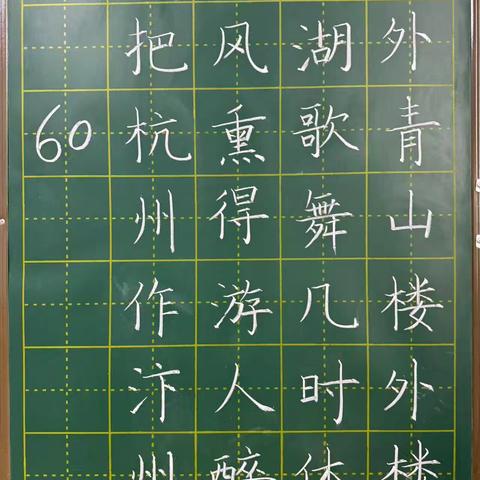 外青山楼外楼
湖歌舞几时休
风熏得游人醉
把杭州作汴州
60